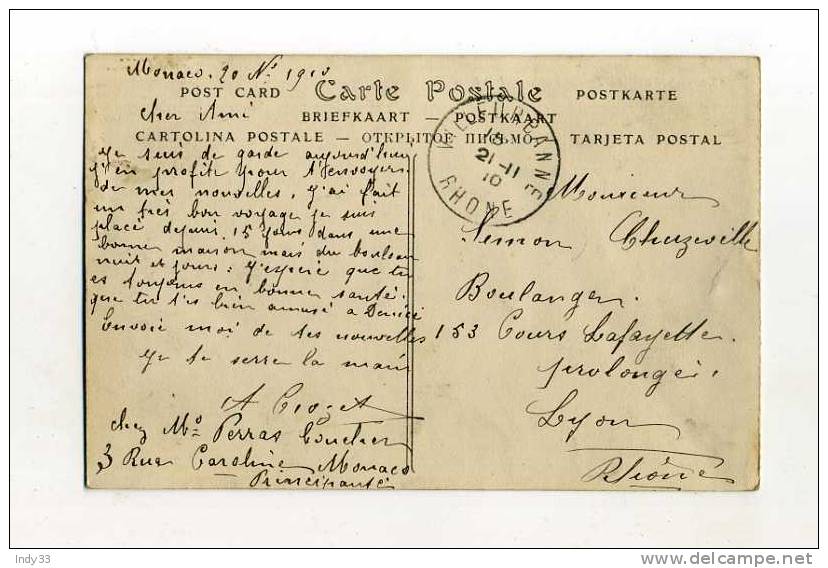 Monaco. 20 Nº 1910
POST CARD
Carte Postale
POSTKARTE
BRIEFKAART — POSTKAART
CARTOLINA POSTALE — ОТКРЫТОЕ ПИСЬМО — TARJETA POSTAL
cher Ami
Je suis de garde aujourd'hui
j'en profite pour t'envoyer
de mes nouvelles, j'ai fait
un très bon voyage je suis
placé depuis 15 jours dans une
bonne maison mais du bouleau
nuit et jours : j'espère que tu
es toujours en bonne santé.
que tu t'es bien amusé a
Envoie moi de tes nouvelles
Je te serre la main
A
chez Mº Perras
3 Rue Caroline Monaco
Principauté
VILLEURBANNE
21-11
10
RHONE
Monsieur
Simon Chuzeville
Boulanger.
153 Cours Lafayette.
prolongé.
Lyon
Rhône
Indy33
delcampe.net